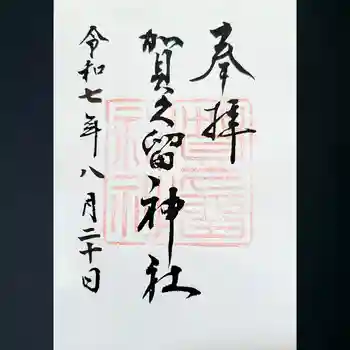 奉拝
加賀久留神社
令和七年八月二十日